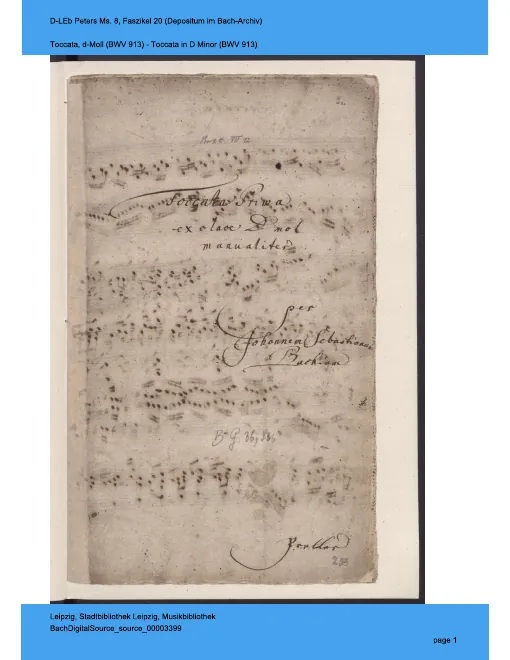 D-LEb Peters Ms. 8, Faszikel 20 (Depositum im Bach-Archiv)
Toccata, d-Moll (BWV 913) - Toccata in D Minor (BWV 913)
Toccata Prima
ex clave D mol
manualiter
per
Johannem Sebastianum
Bachium
Leipzig, Stadtbibliothek Leipzig, Musikbibliothek
BachDigitalSource_source_00003399
page 1